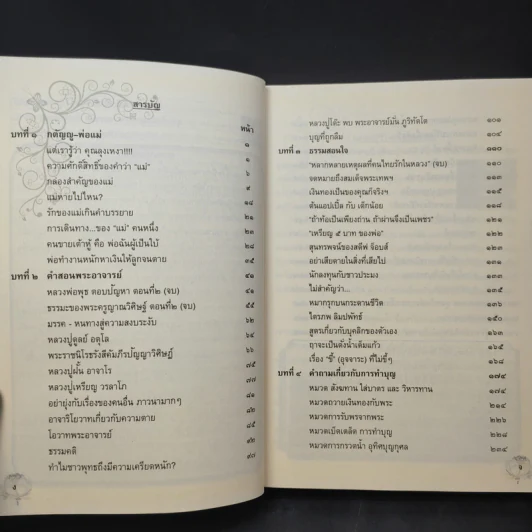 สารบัญ
หน้า
บทที่ ๑ กตัญญู-พ่อแม่ ๑
แต่เรารู้ว่า คุณลุงเหงา!!!! ๑
ความศักดิ์สิทธิ์ของคำว่า "แม่" ๖
กล่องสำคัญของแม่ ๙
แม่หายไปไหน? ๑๔
รักของแม่เกินคำบรรยาย ๒๑
การเดินทาง...ของ "แม่" คนหนึ่ง ๒๓
คนขายเต้าหู้ คือ พ่อฉันผู้เป็นใบ้ ๒๘
พ่อทำงานหนักหาเงินให้ลูกจนตาย ๓๕
บทที่ ๒ คำสอนพระอาจารย์ ๔๑
หลวงพ่อพุธ ตอบปัญหา ตอนที่๒ (จบ) ๔๑
ธรรมะของพระครูญาณวิศิษฏ์ ตอนที่๒ (จบ) ๕๕
มรรค - หนทางสู่ความสงบระงับ ๖๒
หลวงปู่ดูลย์ อตุโล ๖๔
พระราชนิโรธรังสีคัมภีรปัญญาวิศิษฏ์ ๖๖
หลวงปู่ฝั้น อาจาโร ๗๕
หลวงปู่เหรียญ วรลาโภ ๗๗
อย่ายุ่งกับเรื่องของคนอื่น ภาวนามากๆ ๘๐
อาจาริโยวาทเกี่ยวกับความตาย ๘๒
โอวาทพระอาจารย์ ๘๕
ธรรมคติ ๙๐
ทำไมชาวพุทธถึงมีความเครียดหนัก? ๙๗
หลวงปู่โต๊ะ พบ พระอาจารย์มั่น ภูริทัตโต ๑๐๑
บุญที่ถูกลืม ๑๐๔
บทที่ ๓ ธรรมสอนใจ ๑๑๐
"หลากหลายเหตุผลที่คนไทยรักในหลวง" (จบ) ๑๑๐
จดหมายถึงสมเด็จพระเทพฯ
เงินทองเป็นของคุณก็จริงๆ ๑๑๕
ต้นแอปเปิ้ล กับ เด็กน้อย ๑๑๘
"ถ้าท้อเป็นเพียงถ่าน ถ้าผ่านจึงเป็นเพชร"
"เหรียญ ๕ บาท ของพ่อ" ๑๒๒
สุนทรพจน์ของสตีฟ จ็อบส์
อย่าเสียดายในสิ่งที่เสียไป
นักลงทุนกับชาวประมง
ไม่สำคัญว่า... ๑๓๕
หมากรุกบนกระดานชีวิต
ไตรภพ ลิมปพัทธ์ ๑๕๐
สูตรเกี่ยวกับบุคลิกของตัวเอง
ฤาจะเป็นดั่งน้ำเต็มแก้ว ๑๖๕
เรื่อง "ขี้" (อุจจาระ) ที่ไม่ขี้ๆ ๑๖๘
บทที่ ๔ คำถามเกี่ยวกับการทำบุญ ๑๗๔
หมวด สังฆทาน ใส่บาตร และ วิหารทาน ๑๗๔
หมวดถวายเงินทองกับพระ ๒๑๔
หมวดการรับพรจากพระ ๒๒๖
หมวดเบ็ดเตล็ด การทำบุญ ๒๒๘
หมวดการกรวดน้ำ อุทิศบุญกุศล ๒๓๔